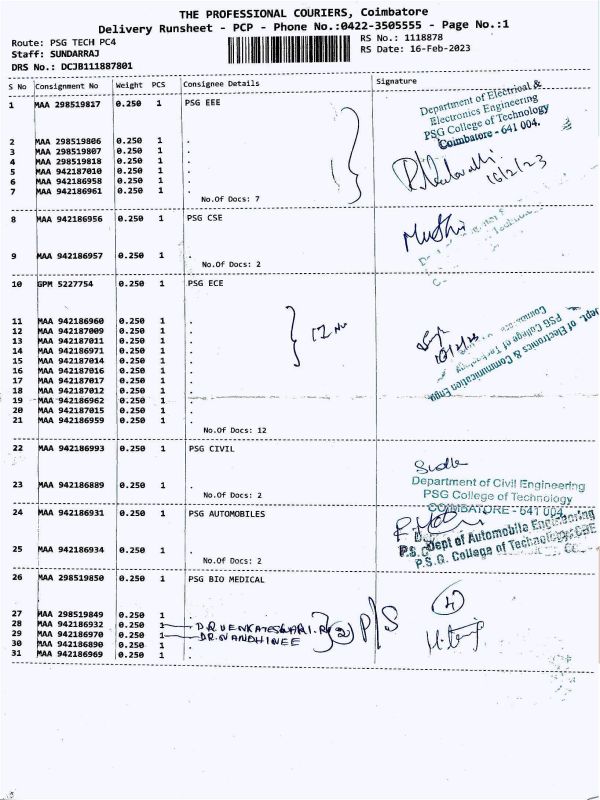 THE PROFESSIONAL COURIERS, Coimbatore
Delivery Runsheet - PCP - Phone No.:0422-3505555 - Page No.:1
Route: PSG TECH PC4
RS No.: 1118878
Staff: SUNDARRAJ
RS Date: 16-Feb-2023
DRS No.: DCJB111887801
S No Consignment No Weight PCS Consignee Details Signature
1 MAA 298519817 0.250 1 PSG EEE
Department of Electrical &
Electronics Engineering
PSG College of Technology
Coimbatore - 641 004.
2 MAA 298519806 0.250 1 .
3 MAA 298519807 0.250 1 .
4 MAA 298519818 0.250 1 .
5 MAA 942187010 0.250 1 .
6 MAA 942186958 0.250 1 .
7 MAA 942186961 0.250 1 .
16/2/23
No.Of Docs: 7
8 MAA 942186956 0.250 1 PSG CSE
9 MAA 942186957 0.250 1 .
No.Of Docs: 2
10 GPM 5227754 0.250 1 PSG ECE
11 MAA 942186960 0.250 1 .
12 MAA 942187009 0.250 1 .
13 MAA 942187011 0.250 1 .
14 MAA 942186971 0.250 1 .
15 MAA 942187014 0.250 1 .
16 MAA 942187016 0.250 1 .
17 MAA 942187017 0.250 1 .
18 MAA 942187012 0.250 1 .
19 MAA 942186962 0.250 1 .
20 MAA 942187015 0.250 1 .
21 MAA 942186959 0.250 1 .
Dept. of Electronics & Communication Engg.
PSG College of Technology
No.Of Docs: 12
22 MAA 942186993 0.250 1 PSG CIVIL
23 MAA 942186889 0.250 1 .
Department of Civil Engineering
PSG College of Technology
COIMBATORE - 641 004
No.Of Docs: 2
24 MAA 942186931 0.250 1 PSG AUTOMOBILES
Dept of Automobile Engineering
P.S.G. College of Technology, CBE
25 MAA 942186934 0.250 1 .
No.Of Docs: 2
26 MAA 298519850 0.250 1 PSG BIO MEDICAL
4
27 MAA 298519849 0.250 1 .
28 MAA 942186932 0.250 1 DR VENKATESWARI.R
29 MAA 942186970 0.250 1 DR.NANDHINEE
2 P/S
30 MAA 942186890 0.250 1 .
31 MAA 942186969 0.250 1 .